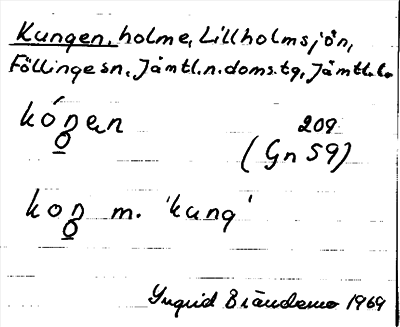 Kungen, holme, Lillholmsjön,
Föllinge sn, Jämtl. n. doms. tg, Jämtl. l.
kóŋ̥en
209
(Gn 59)
koŋ̥ m. 'kung'
Ingrid 1969